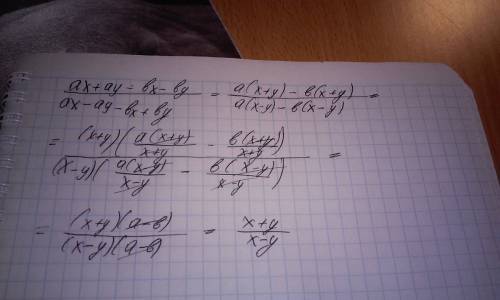 (ax+ay-bx-by)/(ax-ay-bx+by) = (a(x+y)-b(x+y))/(a(x-y)-b(x-y)) =
= ((x+y)(a(x+y)/(x+y) - b(x+y)/(x+y)))/((x-y)(a(x-y)/(x-y) - b(x-y)/(x-y))) =
= ((x+y)(a-b))/((x-y)(a-b)) = (x+y)/(x-y)